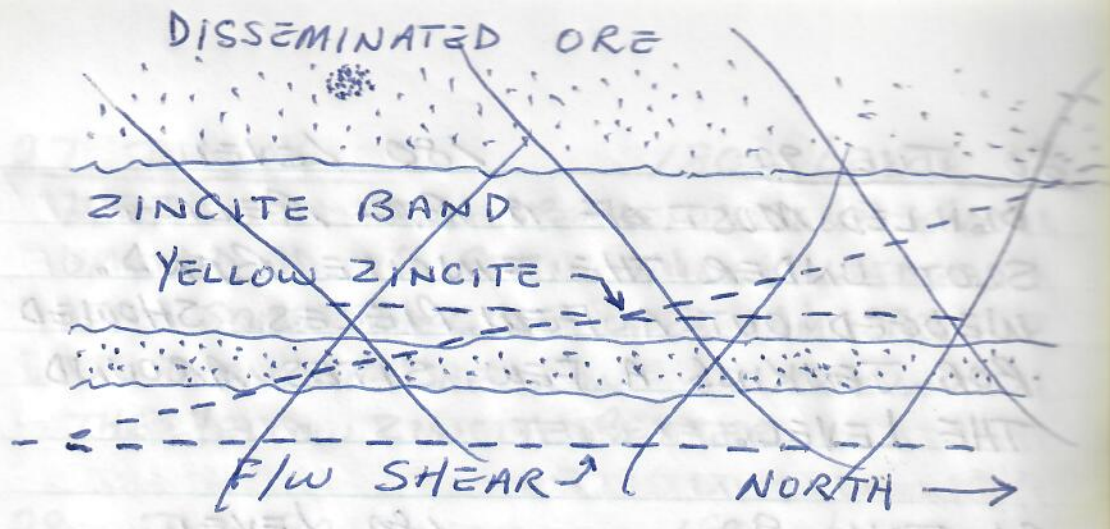 DISSEMINATED ORE
ZINCITE BAND
YELLOW ZINCITE
F/W SHEAR
NORTH